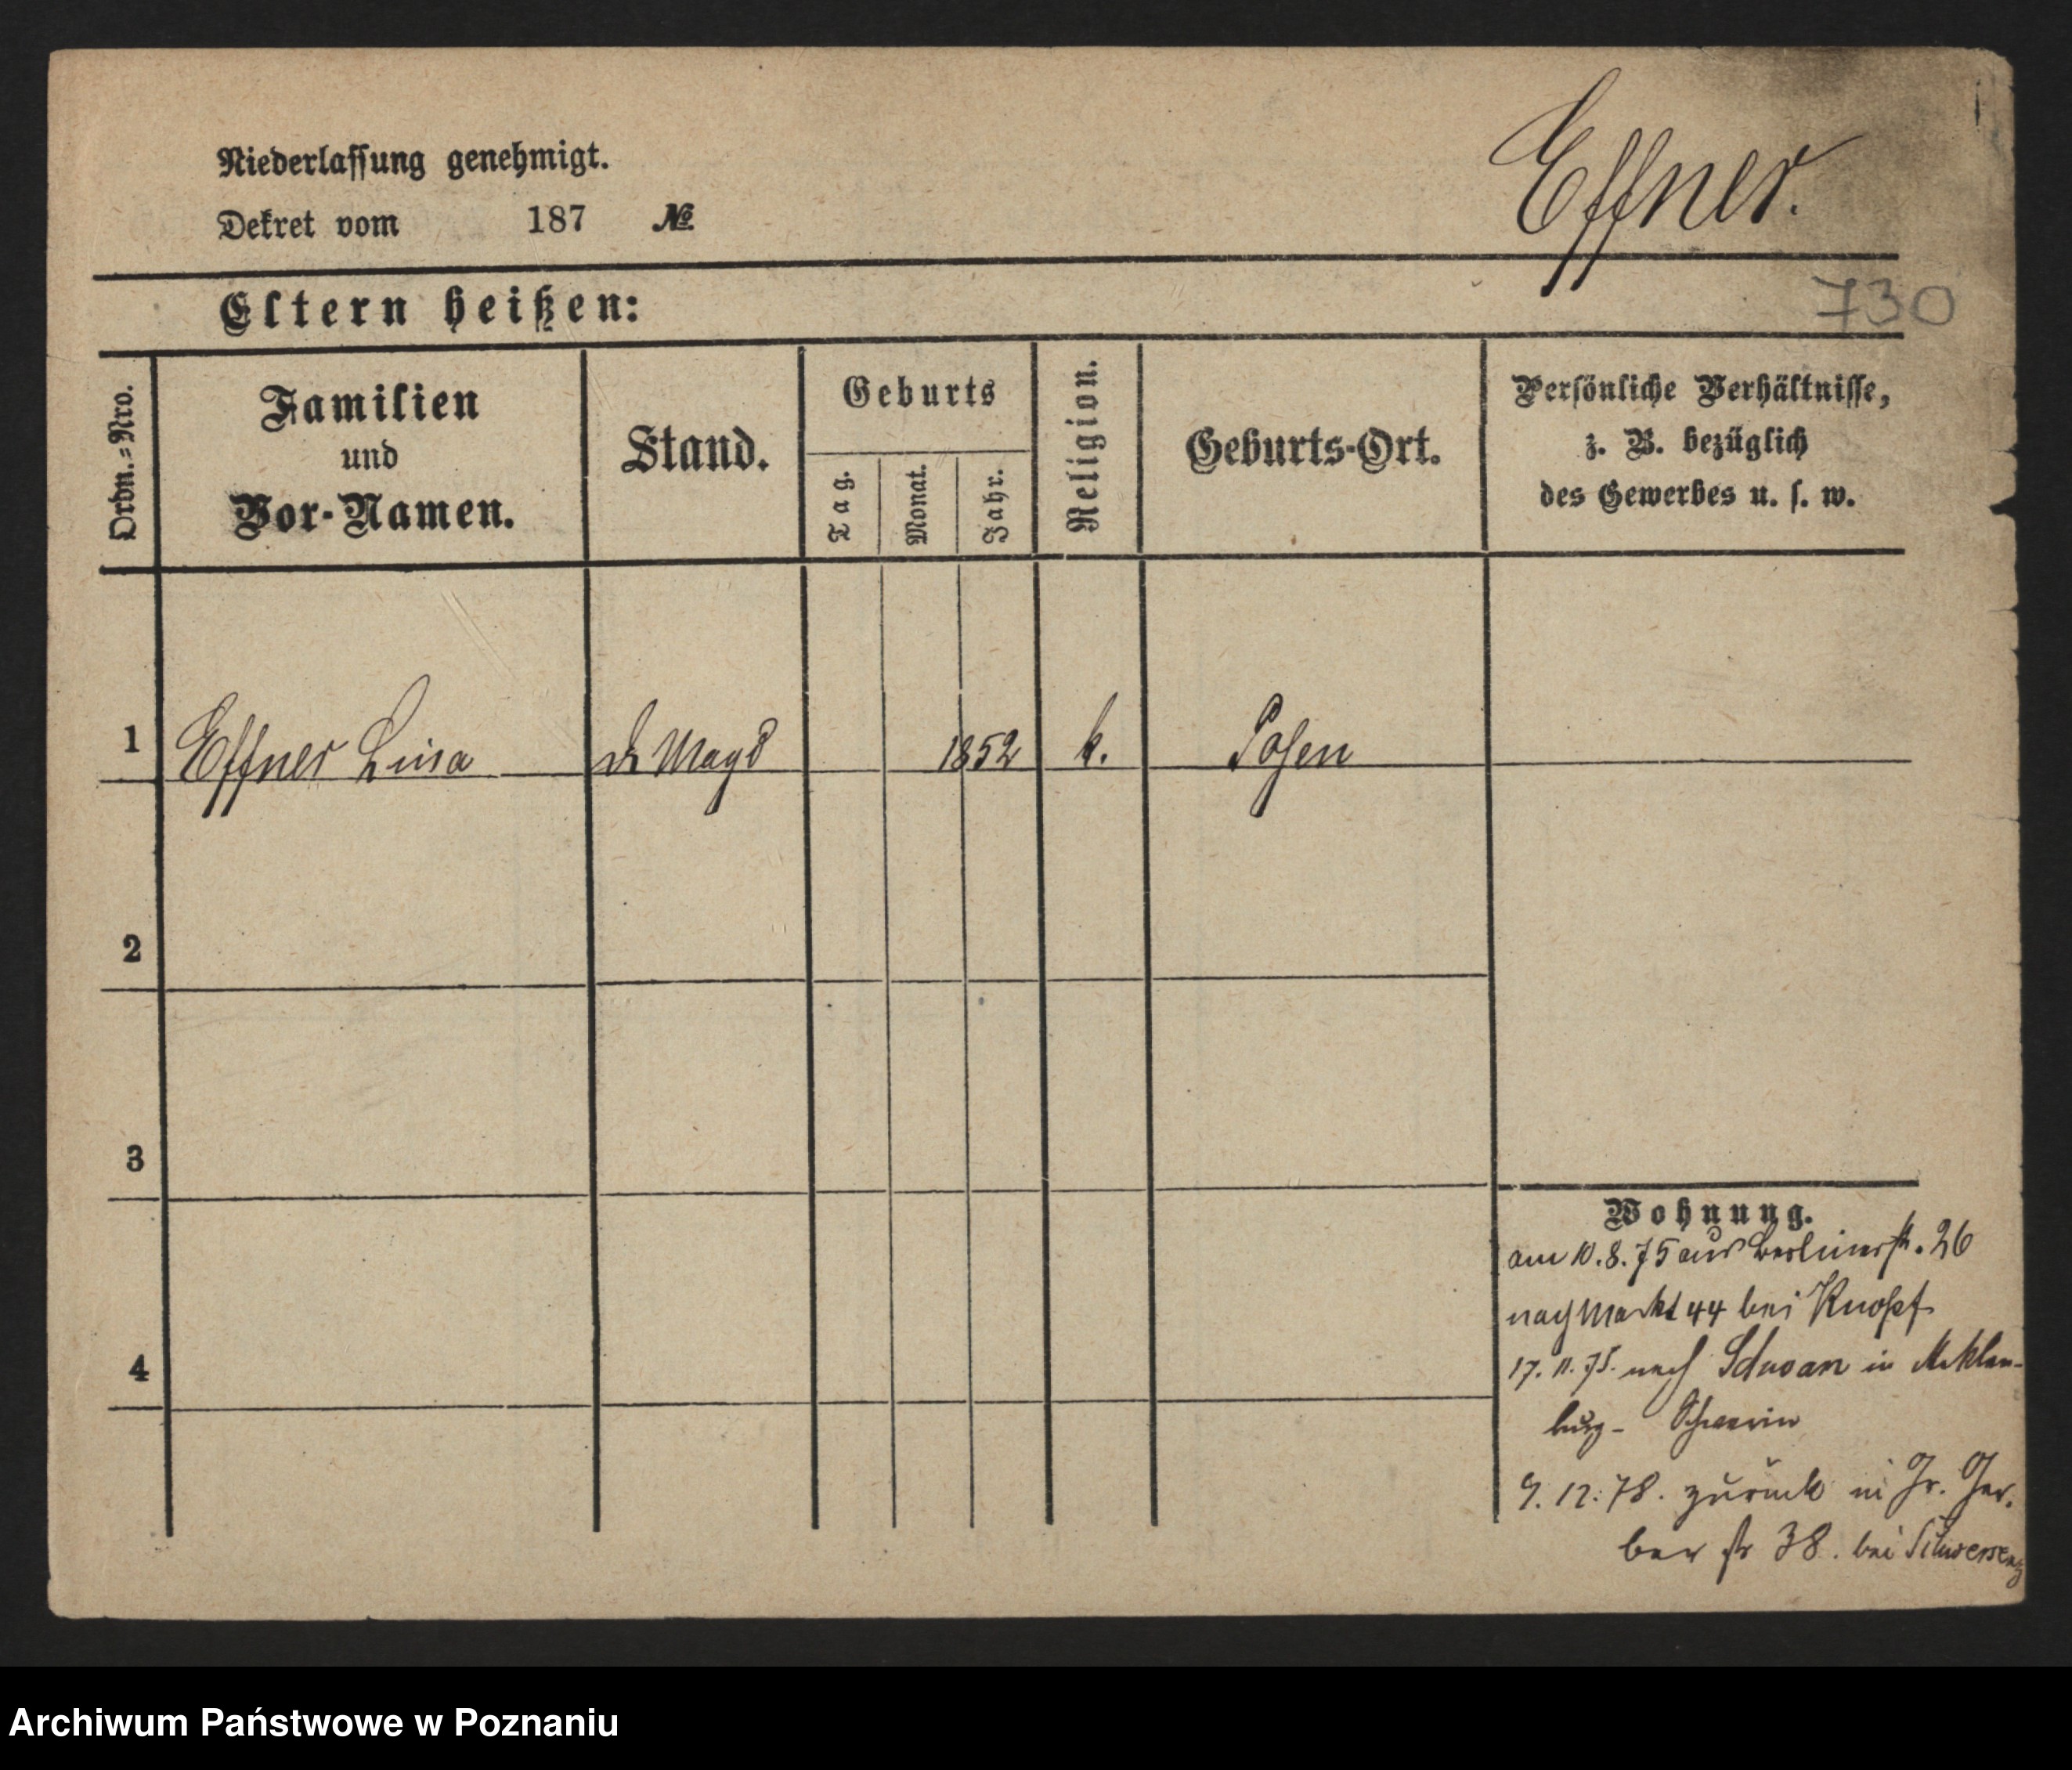 Niederlassung genehmigt.
Dekret vom 187 №
Effner.
730
Eltern heißen:
Ordn.=Nro.
Familien
und
Vor-Namen.
Stand.
Geburts
Tag.
Monat.
Jahr.
Religion.
Geburts-Ort.
Persönliche Verhältnisse,
z. B. bezüglich
des Gewerbes u. s. w.
1 Effner Luisa Magd 1852 k. Posen
2
3
4
Wohnung.
am 10.8.75 aus Berlinerstr. 26
nach Markt 44 bei Knopf
17.11.75. nach Schwaan in Meklen-
burg- Schwerin
9.12.78. zurück in Gr. Ger-
ber str 38. bei Schwersenz
Archiwum Państwowe w Poznaniu